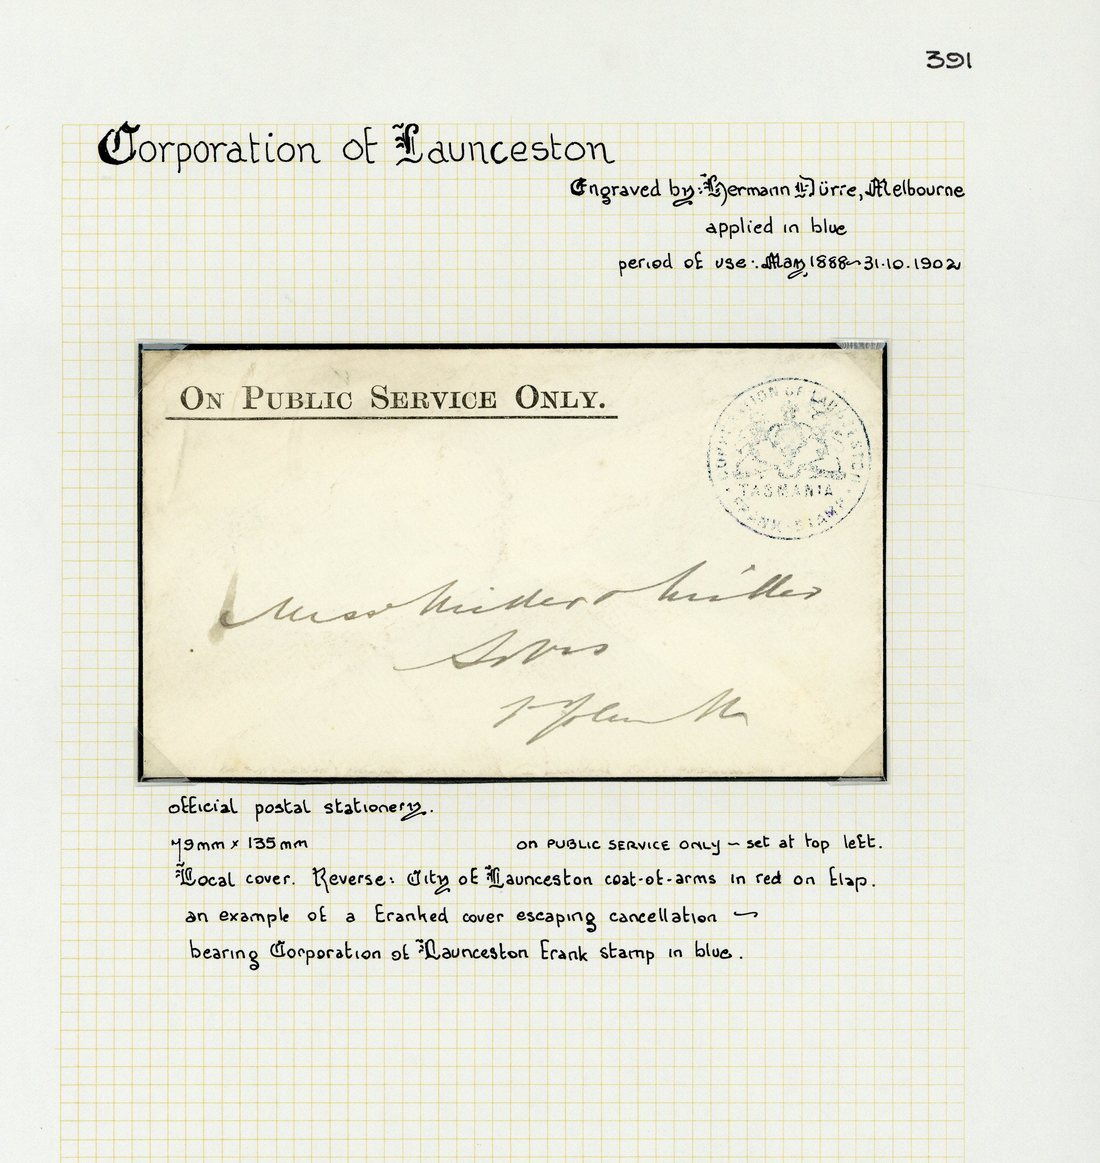 391
Corporation of Launceston
Engraved by: Hermann Dürre, Melbourne
applied in blue
period of use: May, 1888~31.10.1902
ON PUBLIC SERVICE ONLY.
CORPORATION OF LAUNCESTON
TASMANIA
FRANK STAMP
Miller & Miller
St John St
official postal stationery.
79mm x 135mm on PUBLIC SERVICE ONLY ~ set at top left.
Local cover. Reverse: City of Launceston coat-of-arms in red on flap.
an example of a franked cover escaping cancellation ~
bearing Corporation of Launceston frank stamp in blue.